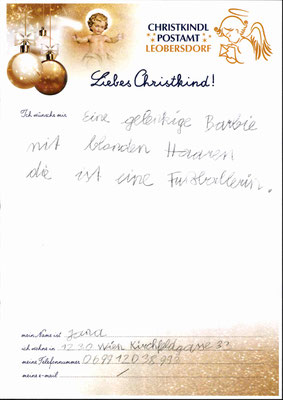 CHRISTKINDL
POSTAMT
LEOBERSDORF
Liebes Christkind!
Ich wünsche mir Eine gelenkige Barbie
mit blonden Haaren
die ist eine Fußballerin.
mein Name ist Jana
ich wohne in 1230 Wien Kirchfeldgasse 33
meine Telefonnummer
meine e-mail /